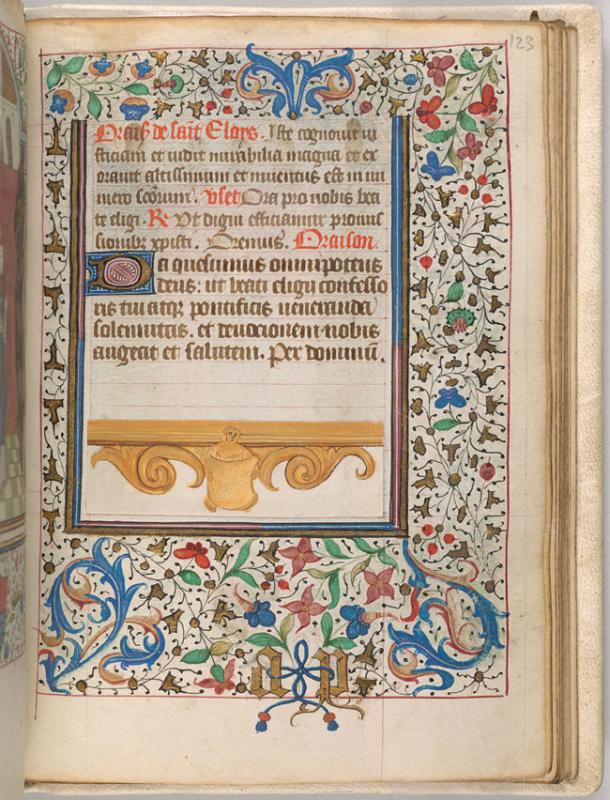 123
Orais de saīt Eloys. Iste cognouit iu
sticiam et uidit mirabilia magna et ex
orauit altissimum et inuentus est in nu
mero scōrum. Vset Ora pro nobis bea
te eligi. R Ut digni efficiamur promis
sionibꝫ xpisti. Oremus. Oraison.
Da quesumus omnipotens
deus: ut beati eligii confesso
ris tui atqꝫ pontificis ueneranda
solennitas. et deuocionem nobis
augeat et salutem. Per dominū.
a p